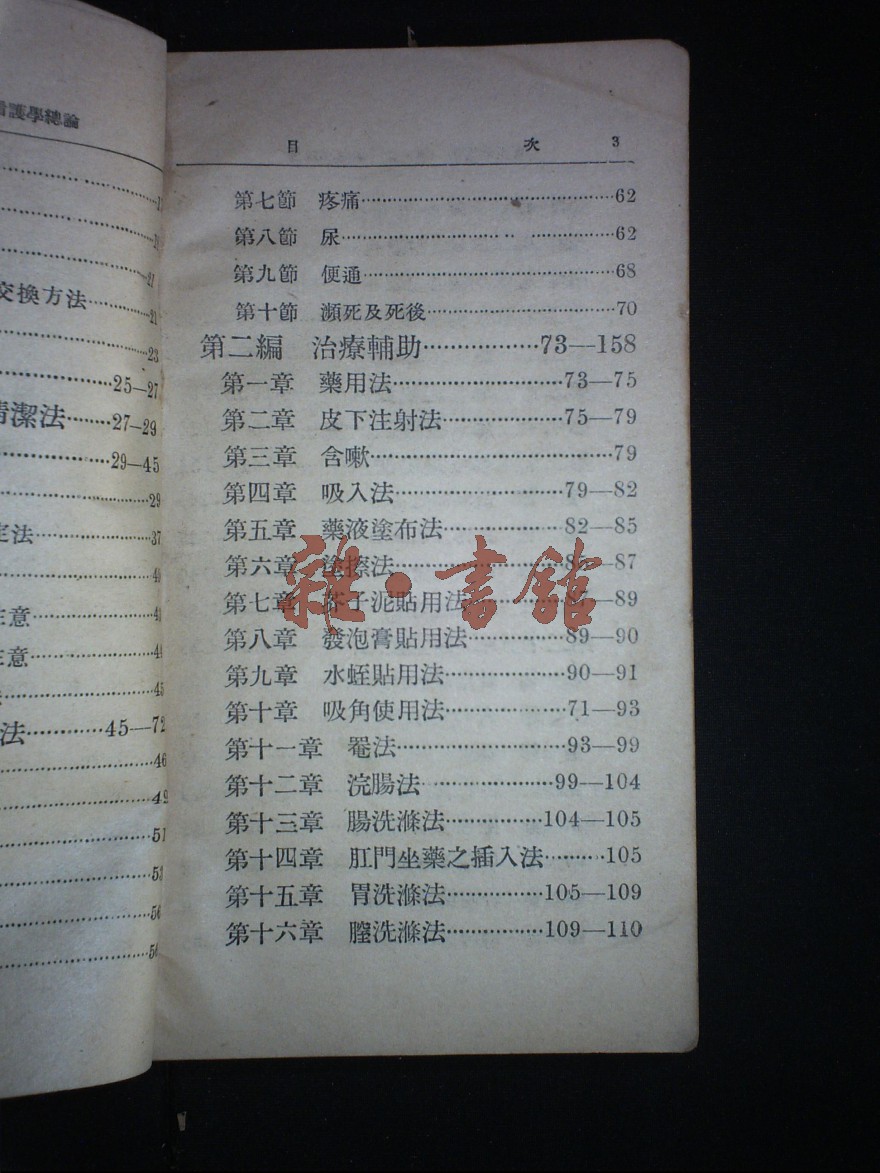 看護學總論
交換方法……21
……23
……25—27
清潔法……27-29
……29—45
……29
定法……37
注意
注意……44
……45
法……45—72
……46
……49
……51
……53
……56
目 次 3
第七節 疼痛……62
第八節 尿……62
第九節 便通……68
第十節 瀕死及死後……70
第二編 治療輔助……73—158
第一章 藥用法……73—75
第二章 皮下注射法……75—79
第三章 含嗽……79
第四章 吸入法……79—82
第五章 藥液塗布法……82—85
第六章 塗擦法……85—87
第七章 芥子泥貼用法……87—89
第八章 發泡膏貼用法……89—90
第九章 水蛭貼用法……90—91
第十章 吸角使用法……71—93
第十一章 罨法……93—99
第十二章 浣腸法……99—104
第十三章 腸洗滌法……104—105
第十四章 肛門坐藥之插入法……105
第十五章 胃洗滌法……105—109
第十六章 膣洗滌法……109—110
雜·書館